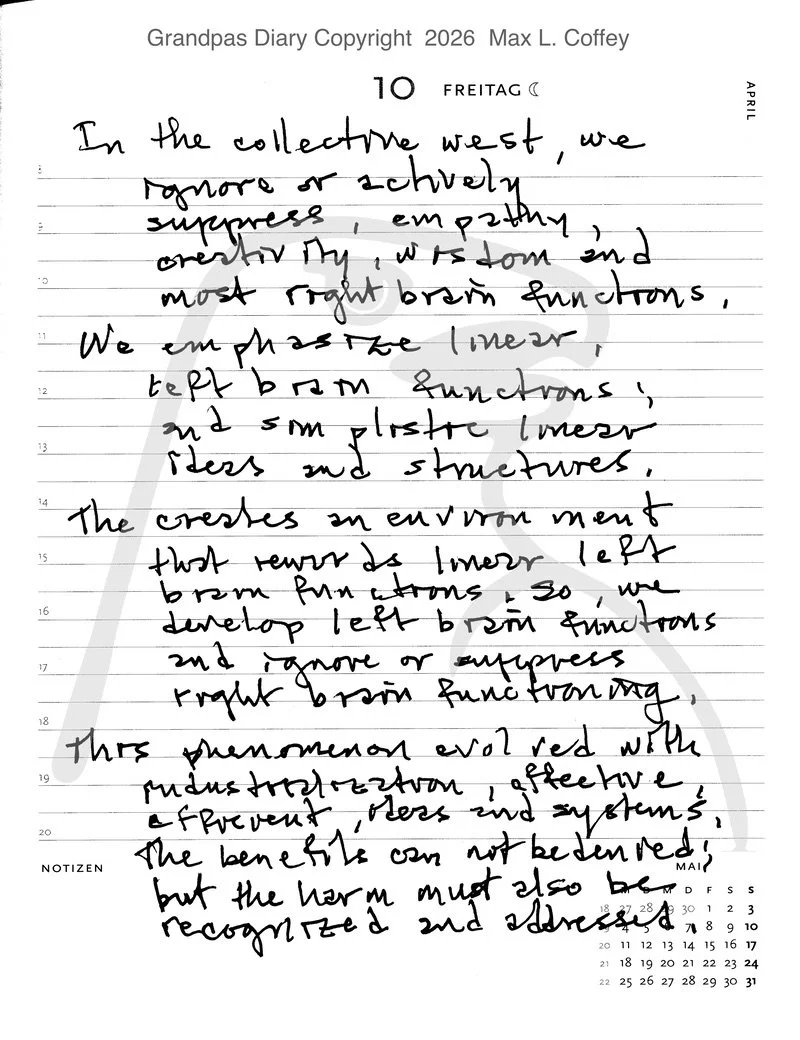 Grandpas Diary Copyright 2026 Max L. Coffey
10 FREITAG
APRIL
In the collective west, we
8
ignore or actively
suppress, empathy,
9
creativity, wisdom and
10
most right brain functions.
11
We emphasize linear,
12
left brain functions;
and simplistic linear
13
ideas and structures.
14
The creates an environment
15
that rewards linear left
brain functions. So, we
16
develop left brain functions
17
and ignore or suppress
right brain functioning.
18
This phenomenon evolved with
19
industrialization, effective,
efficient, ideas and systems.
20
The benefits can not be denied;
NOTIZEN
MAI
but the harm must also be
recognized and addressed.
M D F S S
18 27 28 29 30 1 2 3
4 5 7 8 9 10
20 11 12 13 14 15 16 17
21 18 19 20 21 22 23 24
22 25 26 27 28 29 30 31